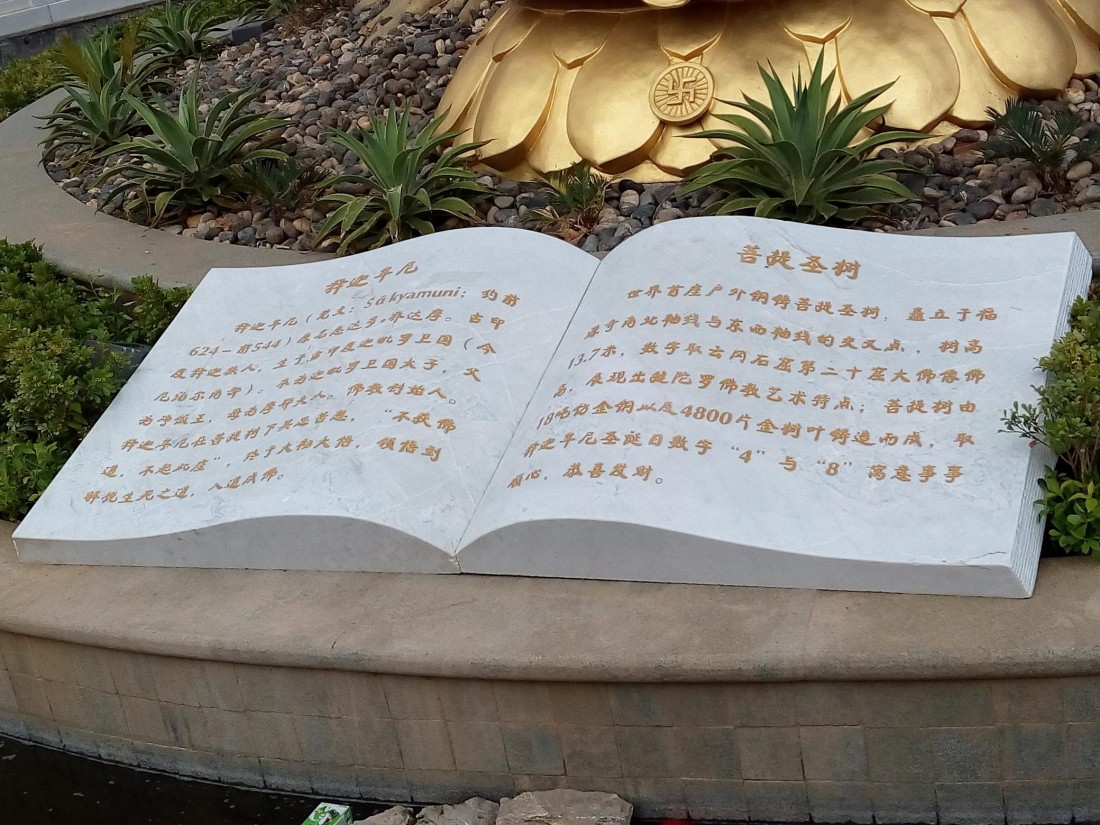 释迦牟尼
释迦牟尼(梵文:śākyamuni;约前
624-前544)原名悉达多·乔达摩。古印
度释迦族人,生于古印度迦毗罗卫国(今
尼泊尔南部)。本为迦毗罗卫国太子,父
为净饭王,母为摩耶夫人。佛教创始人。
释迦牟尼在菩提树下冥思苦想,“不获佛
道,不起此座”,终于大彻大悟,领悟到
解脱生死之道,入道成佛。
菩提圣树
世界首座户外铜铸菩提圣树,矗立于福
星寺南北轴线与东西轴线的交叉点,树高
13.7米,数字取云冈石窟第二十窟大佛像佛
高,展现出犍陀罗佛教艺术特点;菩提树由
18吨仿金铜以及4800片金树叶铸造而成,取
释迦牟尼圣诞日数字“4”与“8”寓意事事
顺心,恭喜发财。